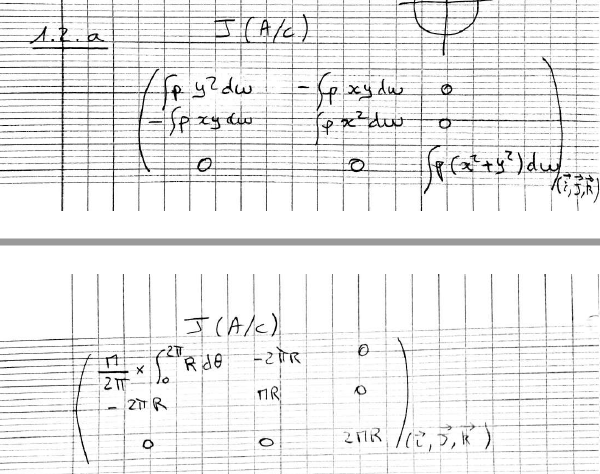 1.2.a J(A/c)
∫ρ y²dω -∫ρ xy dω 0
-∫ρ xy dω ∫ρ x²dω 0
0 0 ∫ρ(x²+y²)dω
(i⃗,j⃗,k⃗)
J(A/c)
π/2π × ∫₀^2π R dθ -2πR 0
- 2πR πR 0
0 0 2πR (i⃗, j⃗, k⃗)